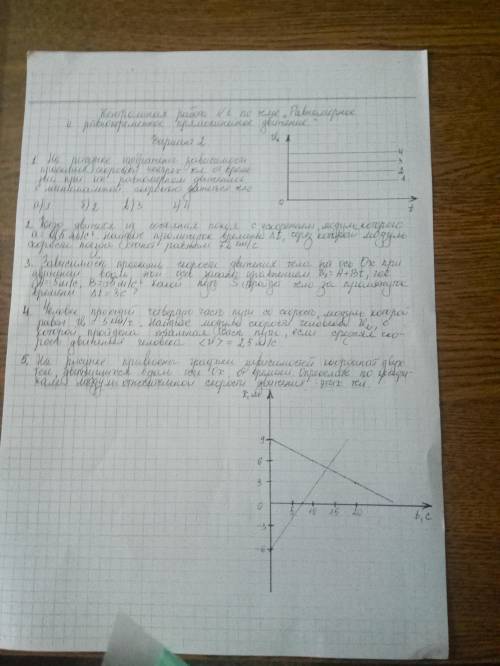 Контрольная работа №1 по теме „Равномерное
и равнопеременное прямолинейное движение"
Вариант 2
1. На рисунке представлена зависимость
проекций скорости четырех тел от време
ни при их равномерном движении.
С минимальной скоростью движется тело
а) 1 б) 2 в) 3 г) 4
4
3
2
1
0
t
2. Тело движется из состояния покоя с ускорением, модуль которого
найдите промежуток времени Δt, через который модуль
скорости тела станет равным
3. Зависимость проекции скорости движения тела на ось Ox при
движении вдоль этой оси имеет вид: уравнением = A + Bt, где
Какой путь S пройдет тело за промежуток
времени Δt = 3c?
4. Человек, проходит четверть часть пути со скоростью, модуль которой
равен = 5 км/с. Найдите модуль скорости человека
которой, пройдена остальная часть пути, если средняя ско-
рость движения человека <V> = 2,5 м/с
5. На рисунке приведены графики зависимостей координат двух
тел, движущихся вдоль оси Ox, от времени. Определите по графи-
кам модуль относительной скорости движения этих тел.
x, м
9
6
3
0
5 10 15 20
t, c
-3
-6